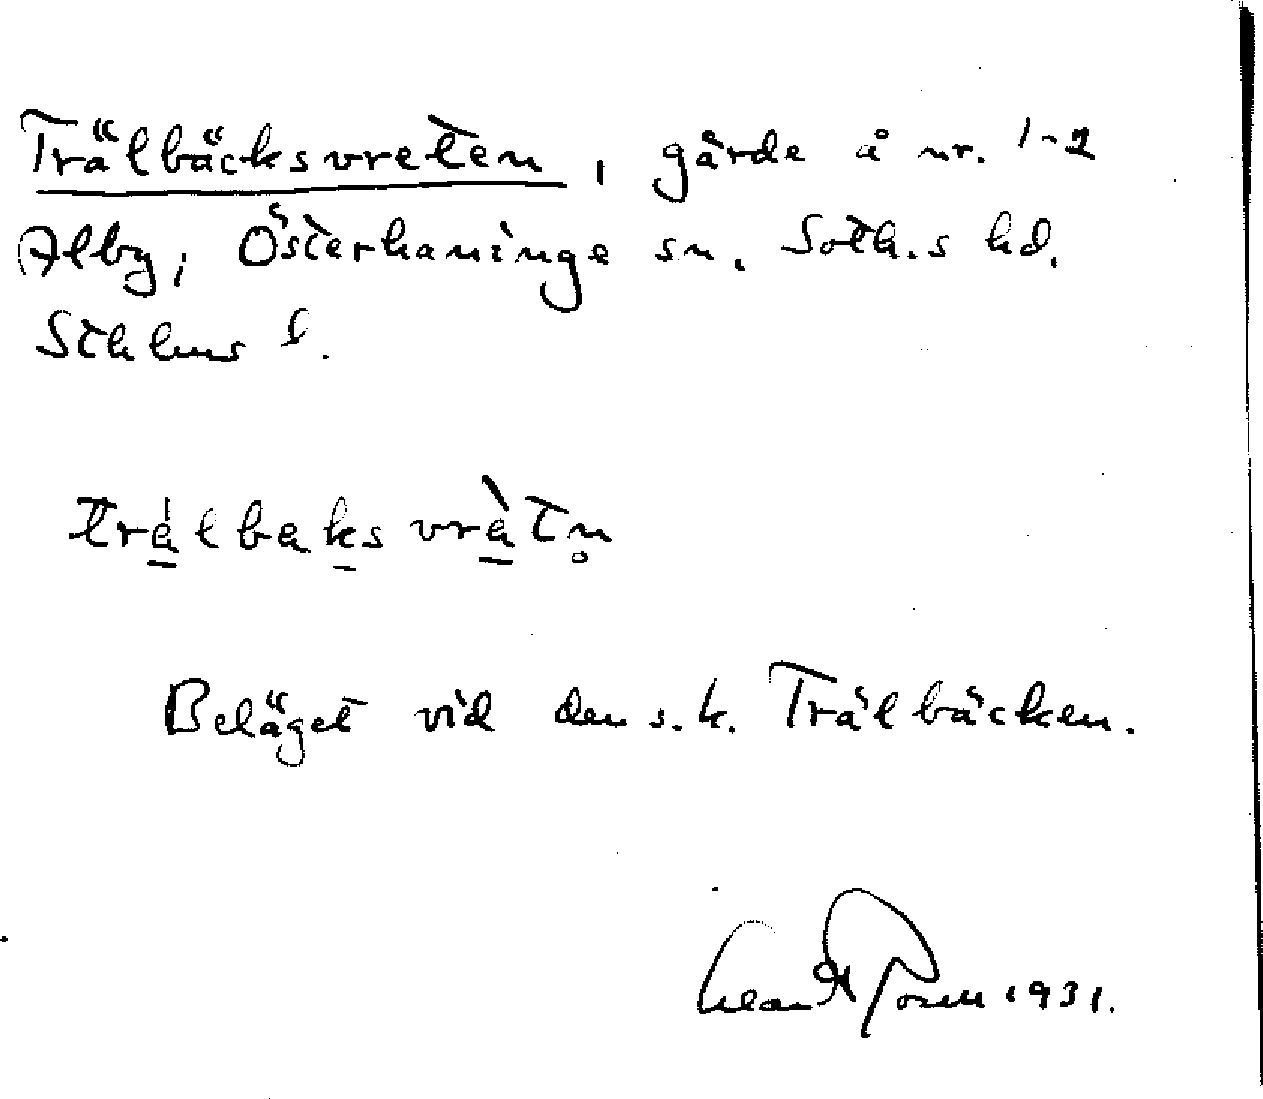 Trälbäcksvreten, gärde å nr. 1-2
Alby, Österhaninge sn. Soth.s hd.
Sthlms l.
trálbaks vràtn̥
Beläget vid den s.k. Trälbäcken.
1931.